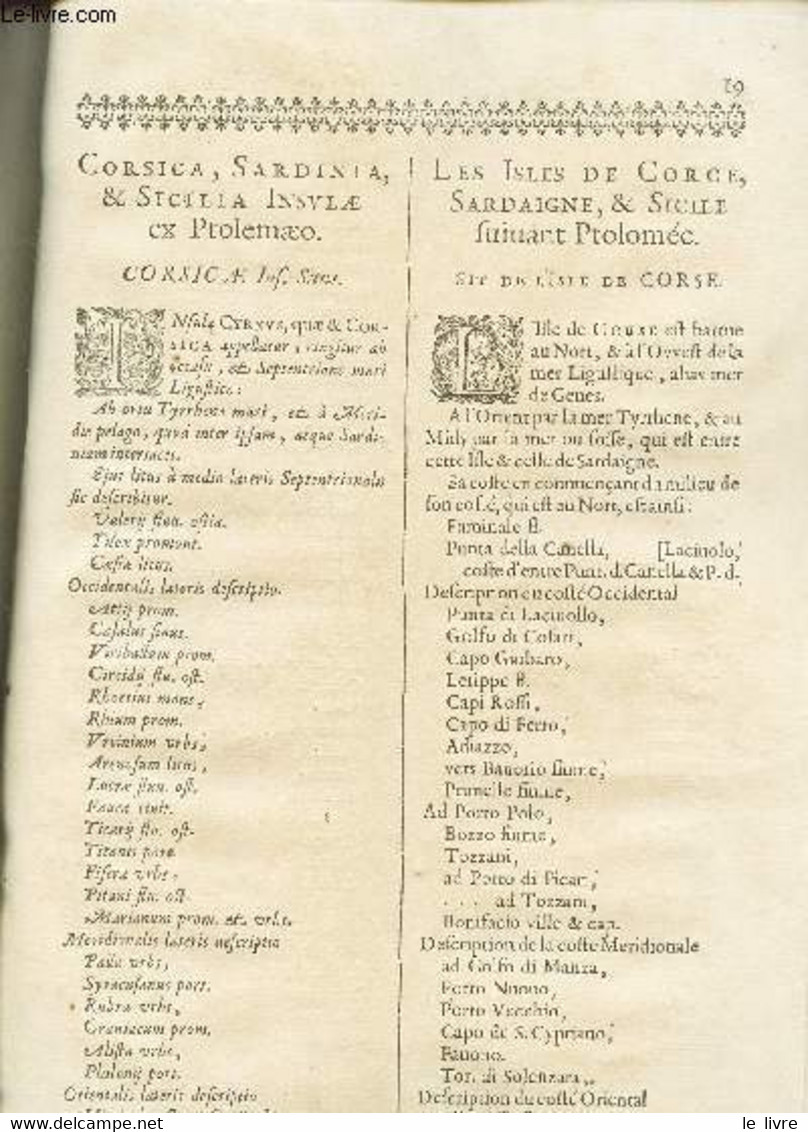 Le-livre.com
19
CORSICA, SARDINIA,
& SICILIA INSVLÆ
ex Ptolemæo.
CORSICÆ Inſ. Situs.
INſula CYRNVS, quæ & COR-
SICA appellatur, cingitur ab
occaſu, et Septentrione mari
Liguſtico:
Ab ortu Tyrrheno mari, et à Meri-
die pelago, quod inter ipſam, atque Sardi-
niam interiacet.
Ejus litus à medio lateris Septentrionalis
ſic deſcribitur.
Valerij flu. oſtia.
Tilox promont.
Cæſia litus.
Occidentalis lateris deſcriptio.
Attij prom.
Caſalus ſinus.
Viriballum prom.
Circidij flu. oſt.
Rhoetius mons,
Rhium prom.
Vrcinium vrbs,
Arenoſum litus,
Locræ flu. oſt.
Pauca civit.
Ticarij flu. oſt.
Titanis port.
Ficera vrbs,
Pitani flu. oſt.
Marianum prom. et vrbs.
Meridionalis lateris deſcriptio
Pauca vrbs,
Syracuſanus port.
Rubra vrbs,
Graniacum prom.
Aliſta vrbs,
Philonij port.
Orientalis lateris deſcriptio
LES ISLES DE CORCE,
SARDAIGNE, & SICILE
ſuiuant Ptolomée.
SIT DE L'ISLE DE CORSE.
L'Iſle de CORSE eſt bornée
au Nort, & à l'Ovveſt de la
mer Liguſtique, alias mer
de Genes.
A l'Orient par la mer Tyrrhene, & au
Midy par la mer ou foſſe, qui eſt entre
cette Iſle & celle de Sardaigne.
Sa coſte en commençant du milieu de
ſon coſté, qui eſt au Nort, eſt ainſi:
Faminale fl.
Punta della Canella, [Laciuolo,
coſte d'entre Punt. d. Canella & P. d.
Deſcription du coſté Occidental
Punta di Laciuollo,
Golfo di Colari,
Capo Guibaro,
Letippe fl.
Capi Roſſi,
Capo di Ferro,
Adiazzo,
vers Bauorio fiume,
Prunelle fiume,
Ad Porto Polo,
Bozzo fiume,
Tozzani,
ad Porto di Ficari,
. . . ad Tozzani,
Bonifacio ville & cap.
Deſcription de la coſte Meridionale
ad Golfo di Manza,
Porto Nuouo,
Porto Vecchio,
Capo de S. Cypriano,
Fauono.
Tor. di Solenzara,
Deſcription du coſté Oriental
le livre